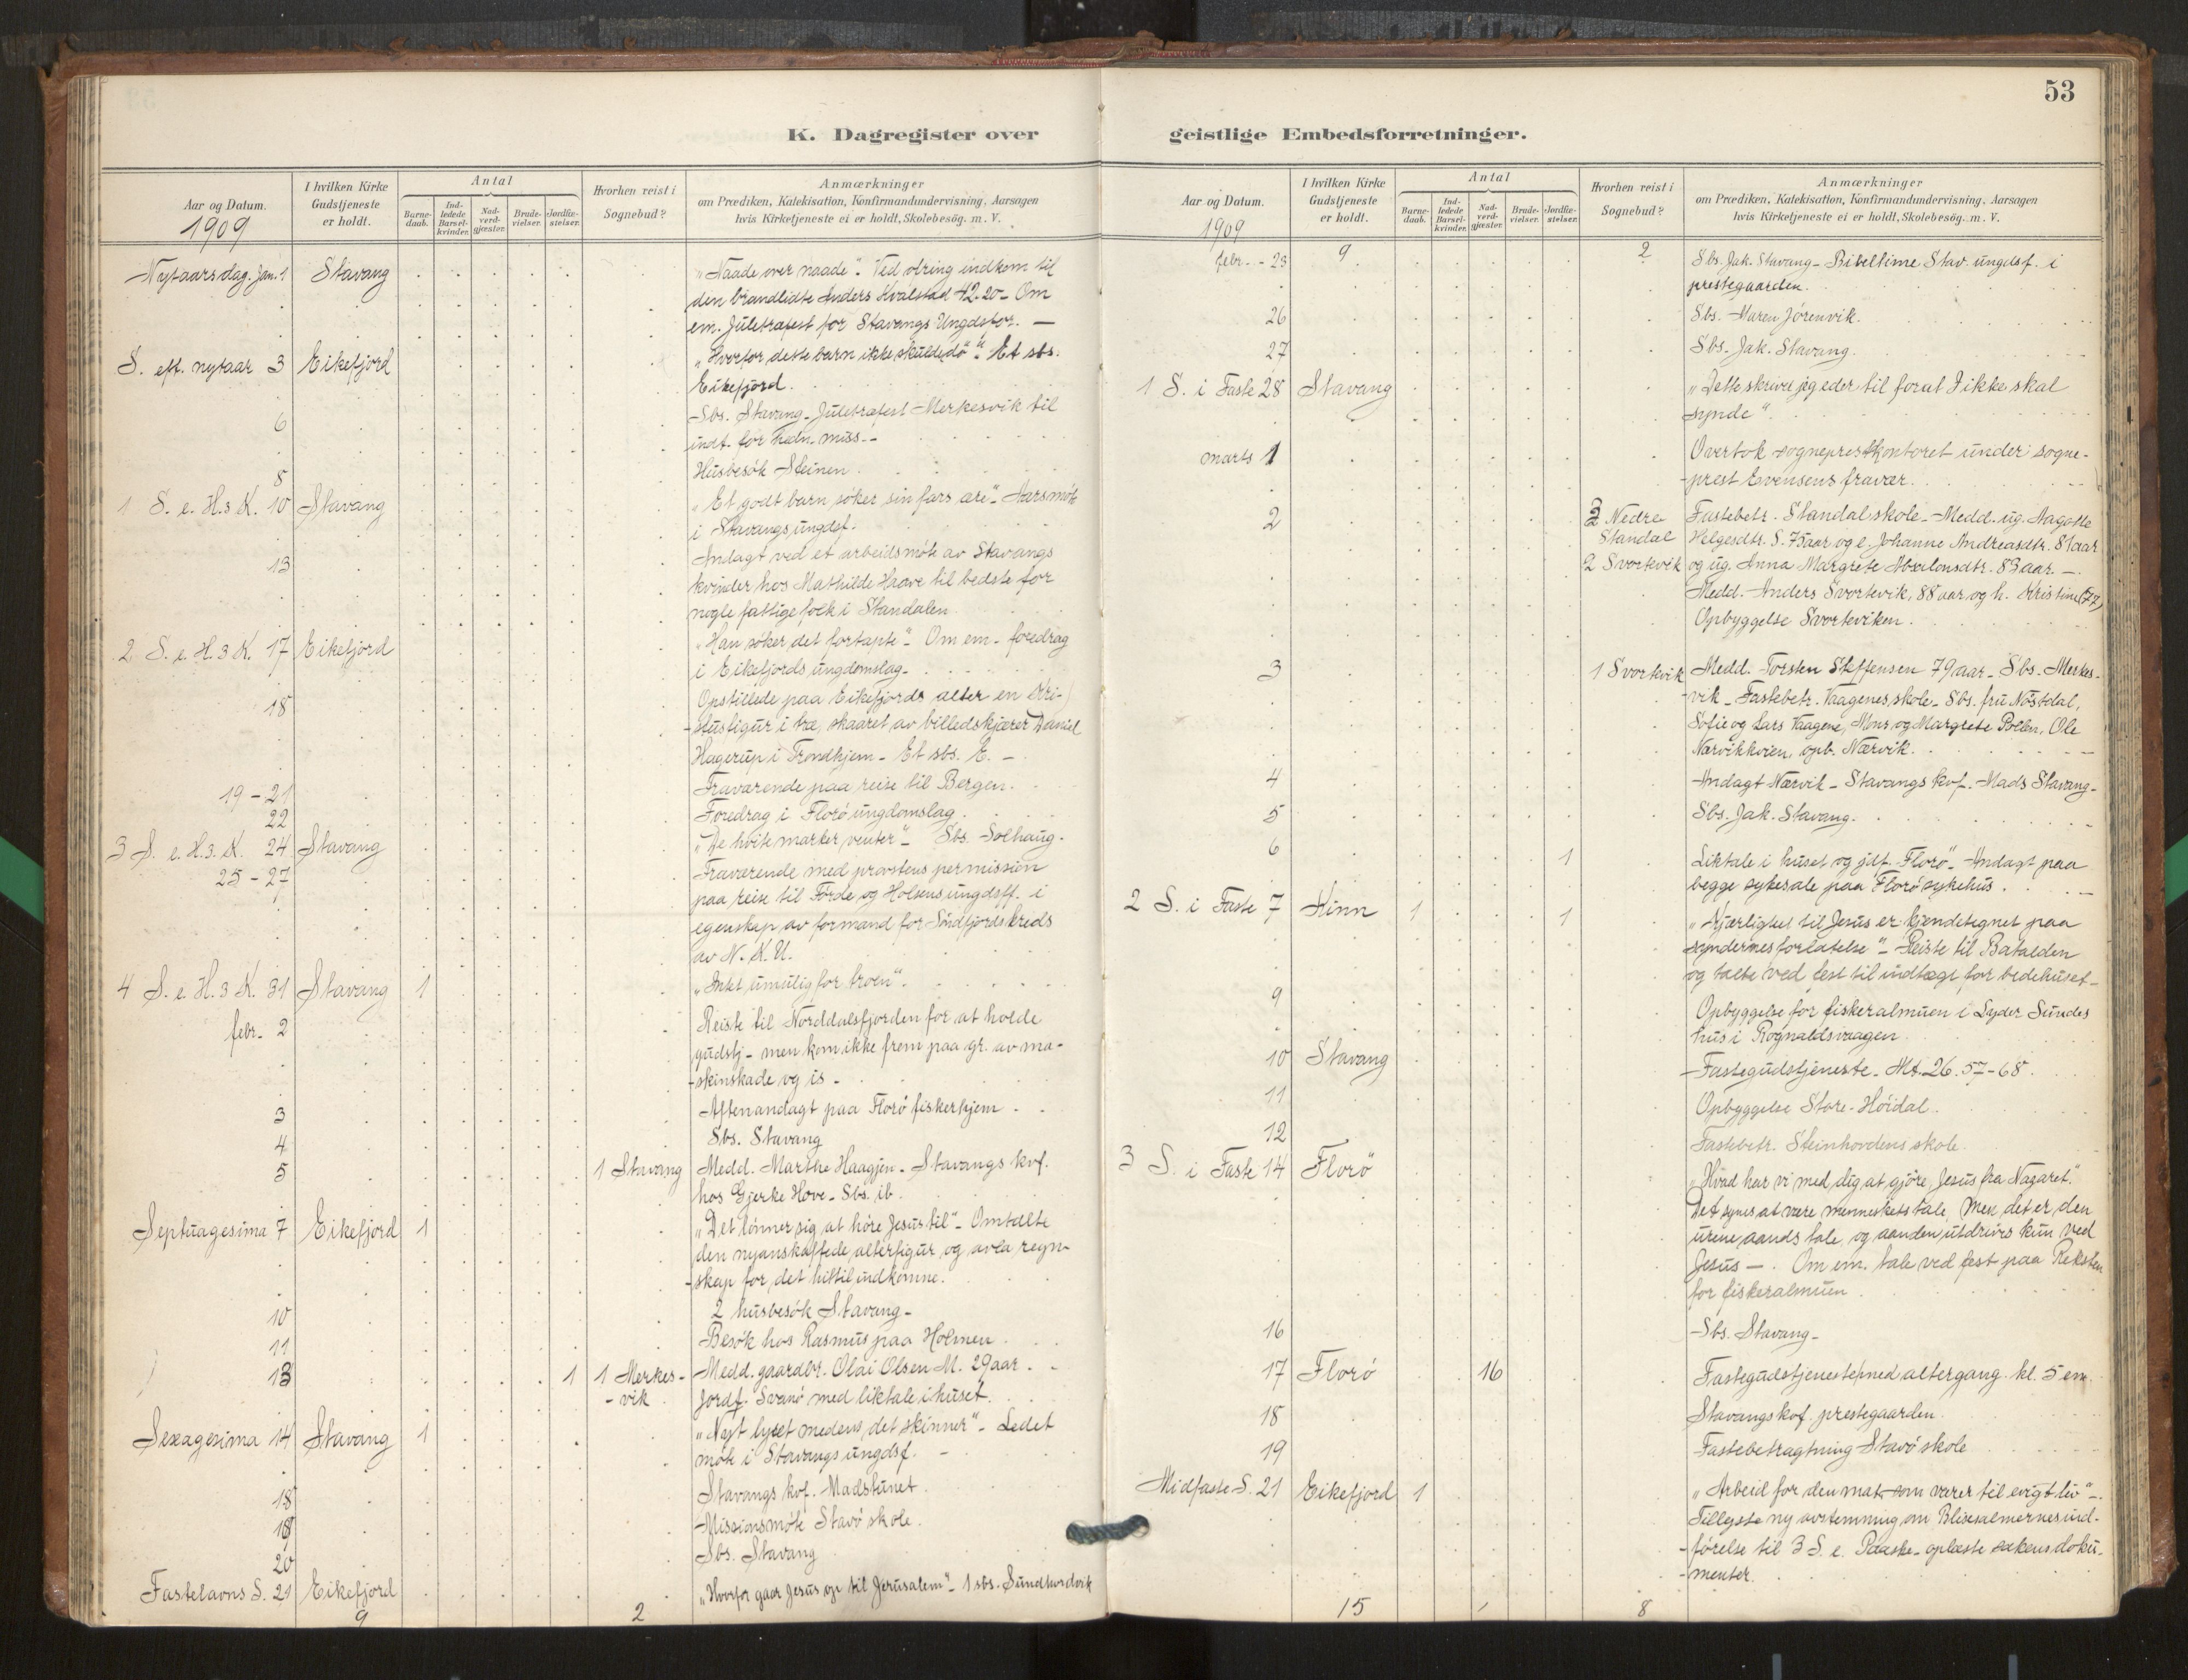 53
K. Dagregister over
geistlige Embedsforretninger.
Aar og Datum.
1909
I hvilken Kirke
Gudstjeneste
er holdt.
Antal
Barne-
daab.
Ind-
ledede
Barsel-
kvinder.
Nad-
verd-
gjæster.
Brude-
vielser.
Jordfæ-
stelser.
Hvorhen reist i
Sognebud?
Anmærkninger
om Prædiken, Katekisation, Konfirmandundervisning, Aarsagen
hvis Kirketjeneste ei er holdt, Skolebesøg. m. V.
Nytaarsdag. Jan. 1 Stavang „Naade over naade“. Ved ofring indkom til
den brandlidte Anders Kvalstad 42.20 – Om
em. Juletræfest for Stavangs Ungdsfor. —
S. eft. nytaar 3 Eikefjord „Hvorfor dette barn ikke skulde dø“. Et sbs.
Eikefjord.
6 Sbs. Stavang – Juletræfest – Merkesvik til
indt. for hedn. miss. –
8 Husbesøk Steinen.
1 S. e. H. 3 K. 10 Stavang „Et godt barn søker sin fars ære“ – Aarsmøte
i Stavangs ungdsf.
13 Andagt ved et arbeidsmøte av Stavangs
kvinder hos Mathilde Haave til bedste for
nogle fattige folk i Standalen.
2 S. e. H. 3 K. 17 Eikefjord „Han søker det fortapte“ – Om em. foredrag
i Eikefjords ungdomslag –
18 Opstillede paa Eikefjords alter en Kri-
-stusfigur i træ, skaaret av billedskjærer Daniel
Hagerup i Trondhjem – Et sbs. E. –
19 – 21 Fraværende paa reise til Bergen.
22 Foredrag i Florø ungdomslag.
3 S. e. H. 3. K. 24 Stavang „De hvite marker venter“ – Sbs. Solhaug.
25 – 27 Fraværende med provstens permission
paa reise til Førde og Holsens ungdsff. i
egenskap av formand for Søndfjords kreds
av N. K. U.
4 S. e. H. 3 K. 31 Stavang 1 „Intet umulig for troen“.
febr. 2 Reiste til Norddalsfjorden for at holde
gudstj – men kom ikke frem paa gr. av ma-
-skinskade og is –
3 Aftenandagt paa Florø fiskerhjem.
4 Sbs. Stavang
5 1 Stavang Medd. Marthe Haagjen – Stavangs kvf.
hos Gjerke Hove – Sbs. ib.
Septuagesima 7 Eikefjord 1 „Det lønner sig at høre Jesus til“ – Omtalte
den nyanskaffede alterfigur og avla regn-
-skap for det hittil indkomne.
10 2 husbesøk Stavang –
11 Besøk hos Rasmus paa Holmen.
13 1 1 Merkes-
-vik Medd. gaardbr. Olai Olsen M. 29 aar.
Jordf. Svanø med liktale i huset.
Sexagesima 14 Stavang 1 „Nyt lyset medens det skinner“ – Ledet
møte i Stavangs ungdsf. –
18 Stavangs kvf. Madstunet.
19 Missionsmøte Stavø skole.
20 Sbs. Stavang
Fastelavns S. 21 Eikefjord „Hvorfor gaar Jesus op til Jerusalem“ – 1 sbs.
9 2
Aar og Datum.
1909
I hvilken Kirke
Gudstjeneste
er holdt.
Antal
Barne-
daab.
Ind-
ledede
Barsel-
kvinder.
Nad-
verd-
gjæster.
Brude-
vielser.
Jordfæ-
stelser.
Hvorhen reist i
Sognebud?
Anmærkninger
om Prædiken, Katekisation, Konfirmandundervisning, Aarsagen
hvis Kirketjeneste ei er holdt, Skolebesøg. m. V.
febr. – 23 9 2 Sbs. Jak. Stavang – Bibeltime Stav. ungdsf. i
prestegaarden.
26 Sbs. Maren Jørenvik.
27 Sbs. Jak. Stavang.
1 S. i Faste 28 Stavang „Dette skriver jeg eder til forat I ikke skal
synde“.
marts 1 Overtok sogneprestkontoret under sogne-
-prest Evensens fravær.
2 3 Nedre
Standal Fastebetr. Standal skole – Medd. ug. Aagotte
Helgesdtr. S. 75 aar og e. Johanne Andreasdtr. 81 aar
2 Svortevik og ug. Anna Margrete Absalonsdtr. 83 aar. –
Medd. Anders Svortevik, 88 aar og h. Kristine (77)
Opbyggelse Svorteviken.
3 1 Svortevik Medd. Torsten Steffensen 79 aar – Sbs. Merkes-
vik – Fastebetr. Vaagenes skole – Sbs. fru Nøstdal,
Sofie og Lars Vaagene, Mons og Margrete Pollen, Ole
Nærvikkvien, opb. Nærvik.
4 Andagt Nærvik – Stavangs kvf. Mads Stavang –
5 Sbs. Jak. Stavang.
6 1 Liktale i huset og jdf. Florø – Andagt paa
begge sykesale paa Florø sykehus.
2 S. i Faste 7 Kinn 1 1 „Kjærlighet til Jesus er kjendetegnet paa
syndernes forlatelse“ – Reiste til Batalden
og talte ved fest til indtægt for bedehuset –
9 Opbyggelse for fiskeralmuen i Lyder Sundes
hus i Rognaldsvaagen
10 Stavang Fastegudstjeneste – Mt. 26. 57 – 68.
11 Opbyggelse Store-Høidal.
12 Fastebetr. Steinhovdens skole.
3 S. i Faste 14 Florø „Hvad har vi med dig at gjøre, Jesus fra Nazaret“.
Det synes at være menneskets tale. Men det er den
urene aands tale, og aanden utdrives kun ved
Jesus – . Om em. tale ved fest paa Reksten
for fiskeralmuen.
16 Sbs. Stavang –
17 Florø 16 Fastegudstjeneste med altergang kl. 5 em.
18 Stavangs kvf. prestegaarden.
19 Fastebetragtning Stavø skole
Midfaste S. 21 Eikefjord 1 „Arbeid for den mat som varer til evigt liv“ –
Tillyste ny avstemning om Blixsalmernes ind-
-førelse til 3 S. e. Paaske – oplæste sakens doku-
-menter.
15 1 8